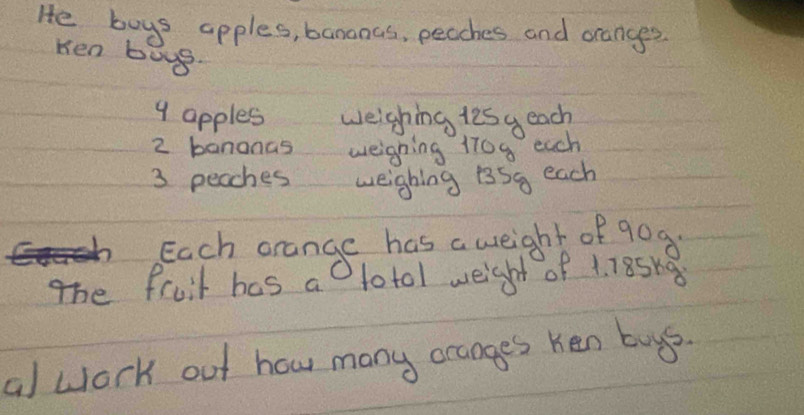 He buys apples, bananas, peaches and oranges.
Ken buys.
4 apples weighing 125g each
2 bananas weighing 170g each
3 peaches weighing 135g each
Each orange has a weight of 90g.
The fruit has a total weight of 1.785kg.
a) Work out how many oranges Ken buys.